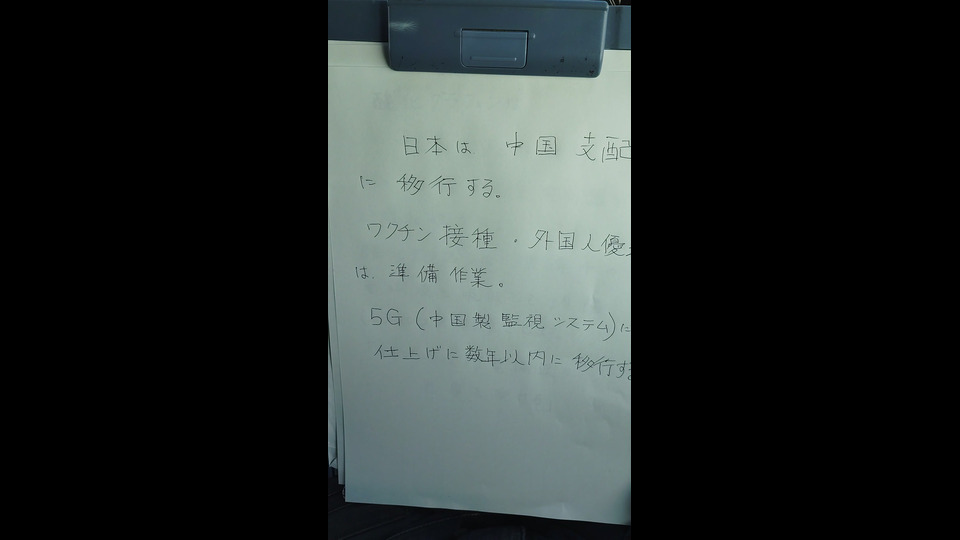 日本は 中国 支配
に 移行する。
ワクチン接種・外国人優
は、準備作業。
5G(中国製監視システム)に
仕上げに数年以内に移行す